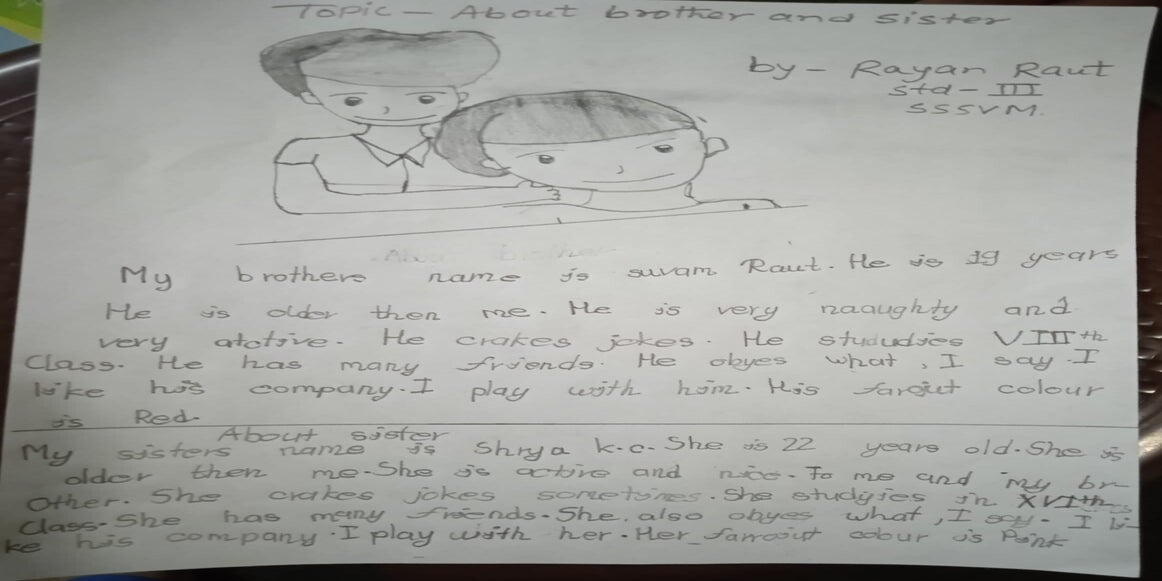 Topic - About brother and sister
by - Rayan Raut
Std - III
SSSVM.
My brothers name is suvam Raut. He is 19 years
He is older then me. He is very naaughty and
very atctive. He crakes jokes. He stududies VIIIth
Class. He has many friends. He obyes what, I say. I
like his company. I play with him. His farout colour
is Red.
About sister
My sisters name is Shrya k.c. She is 22 years old. She is
older then me. She is active and nice. To me and my br-
other. She crakes jokes sometimes. She studyies in XVIth
Class. She has many friends. She also obyes what, I say. I li-
ke his company. I play with her. Her farrouit colour is Pink